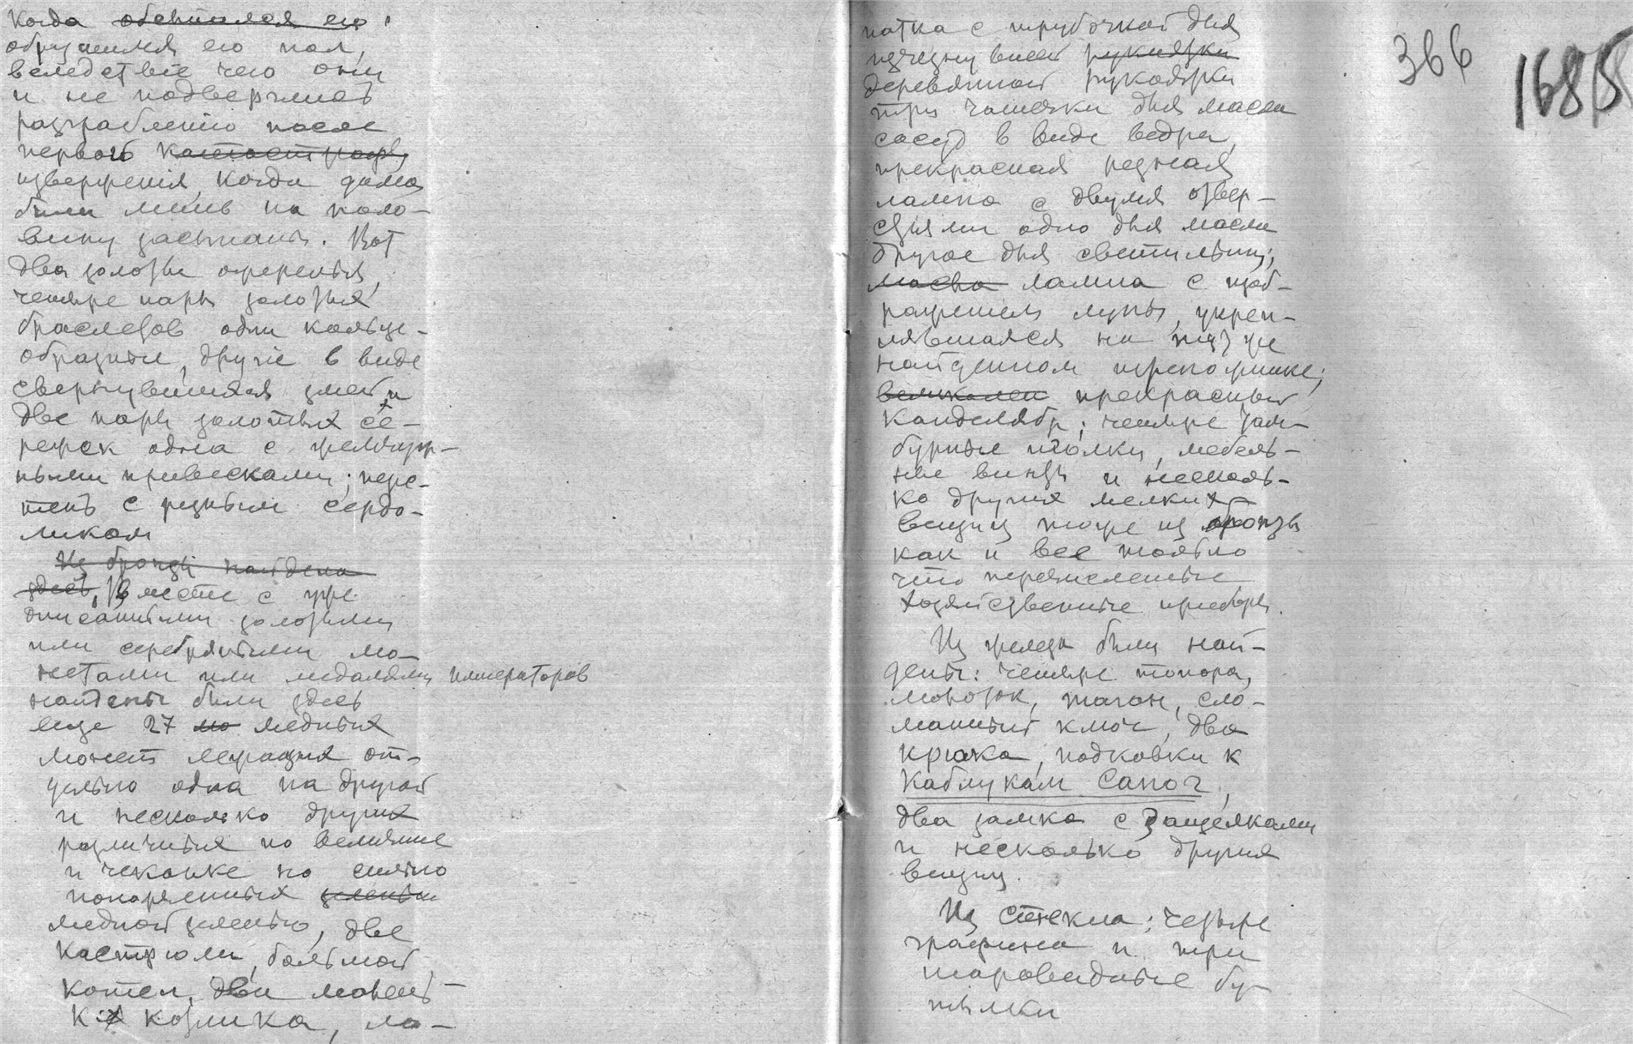 Когда обвалился его
обрушился его пол,
вследствіе чего они
и не подверглись
разграбленію после
первого катастрофы
изверженія, когда дома
были лишь на поло-
вину засыпаны. Вот
два золотые ожерелья,
четыре пары золотых
браслетов одни кольце-
образные, другіе в виде
свернувшихся змей и
две пары золотых се-
режек одна с жемчуж-
ными привесками; перс-
тень с резным сердо-
ликом
Из бронзы найдена
здесь, Вместе с уже
описанными золотыми
или серебряными мо-
нетами или медалями императоров
найдены были здесь
еще 27 мо медных
монет лежащих от-
дельно одна на другой
и несколько других
различных по величине
и чеканке но сильно
попорченных зеленью
медной зеленью, две
кастрюли, большой
котел, два малень-
к котлика, ло-
патка с трубочкой для
вией рукоятки
деревянной рукоятки
три чашечки для масла
сосуд в виде ведра,
прекрасная резная
лампа с двумя отвер-
стіями одно для масла
другое для светильни;
масва лампа с изоб-
раженіем луны, укреп-
лявшаяся на тут же
найденном треножнике;
великолеп прекрасный
канделябр; четыре там-
бурные иголки, мебель-
ные винты и несколь-
ко других мелких
вещиц тоже из бронзы
как и все только
что перечисленные
хозяйственные приборы.
Из железа были най-
дены: четыре топора,
молоток, таган, сло-
манный ключ, два
крюка, подковки к
каблукам сапог,
два замка с защелками
и несколько других
вещиц.
Из стекла: четыре
графина и три
шаровидные бу-
тылки
366
1685